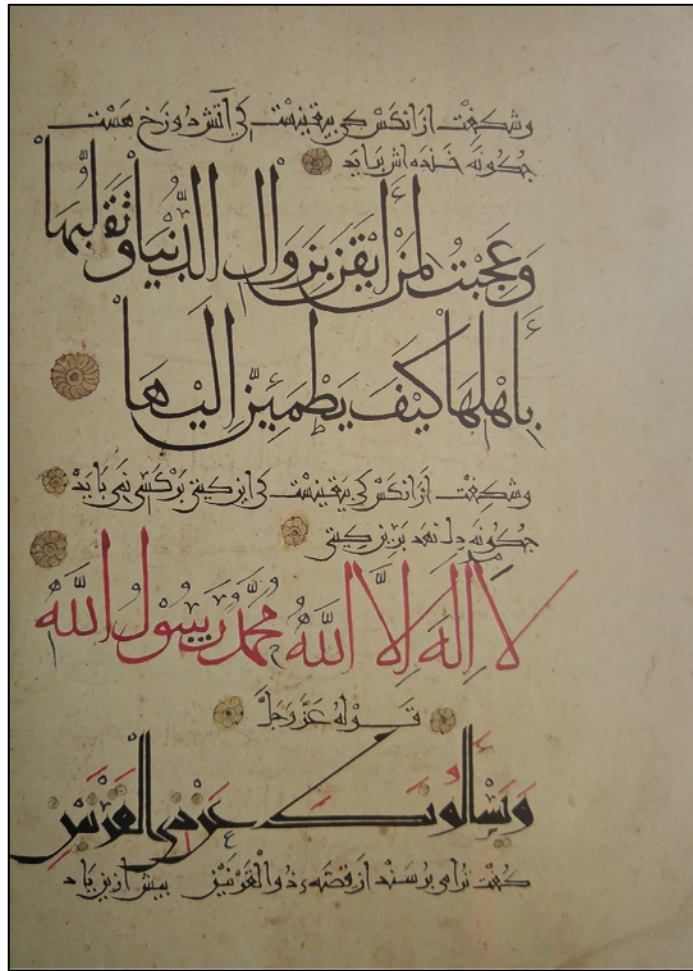 وشكفت ازانكس كى بيقينست كى آتش دوزخ هست
جكونه خنده اش برايد
وَعَجِبْتُ لِمَنْ أَيْقَنَ بِزَوَالِ الدُّنْيَا وَتَقَلُّبِهَا
بِأَهْلِهَا كَيْفَ يَطْمَئِنُّ إِلَيْهَا
وشكفت ازانكس كى بيقينست كى اين كيتى بر كسى نمى بايذ
جكونه دل نهد برين كيتى
لا إله إلا الله محمد رسول الله
قوله عز وجل
وَيَسْأَلُونَكَ عَنْ ذِي الْقَرْنَيْنِ
كفت ترا مى برسند از قصهء ذوالقرنين بيش ازين ياد